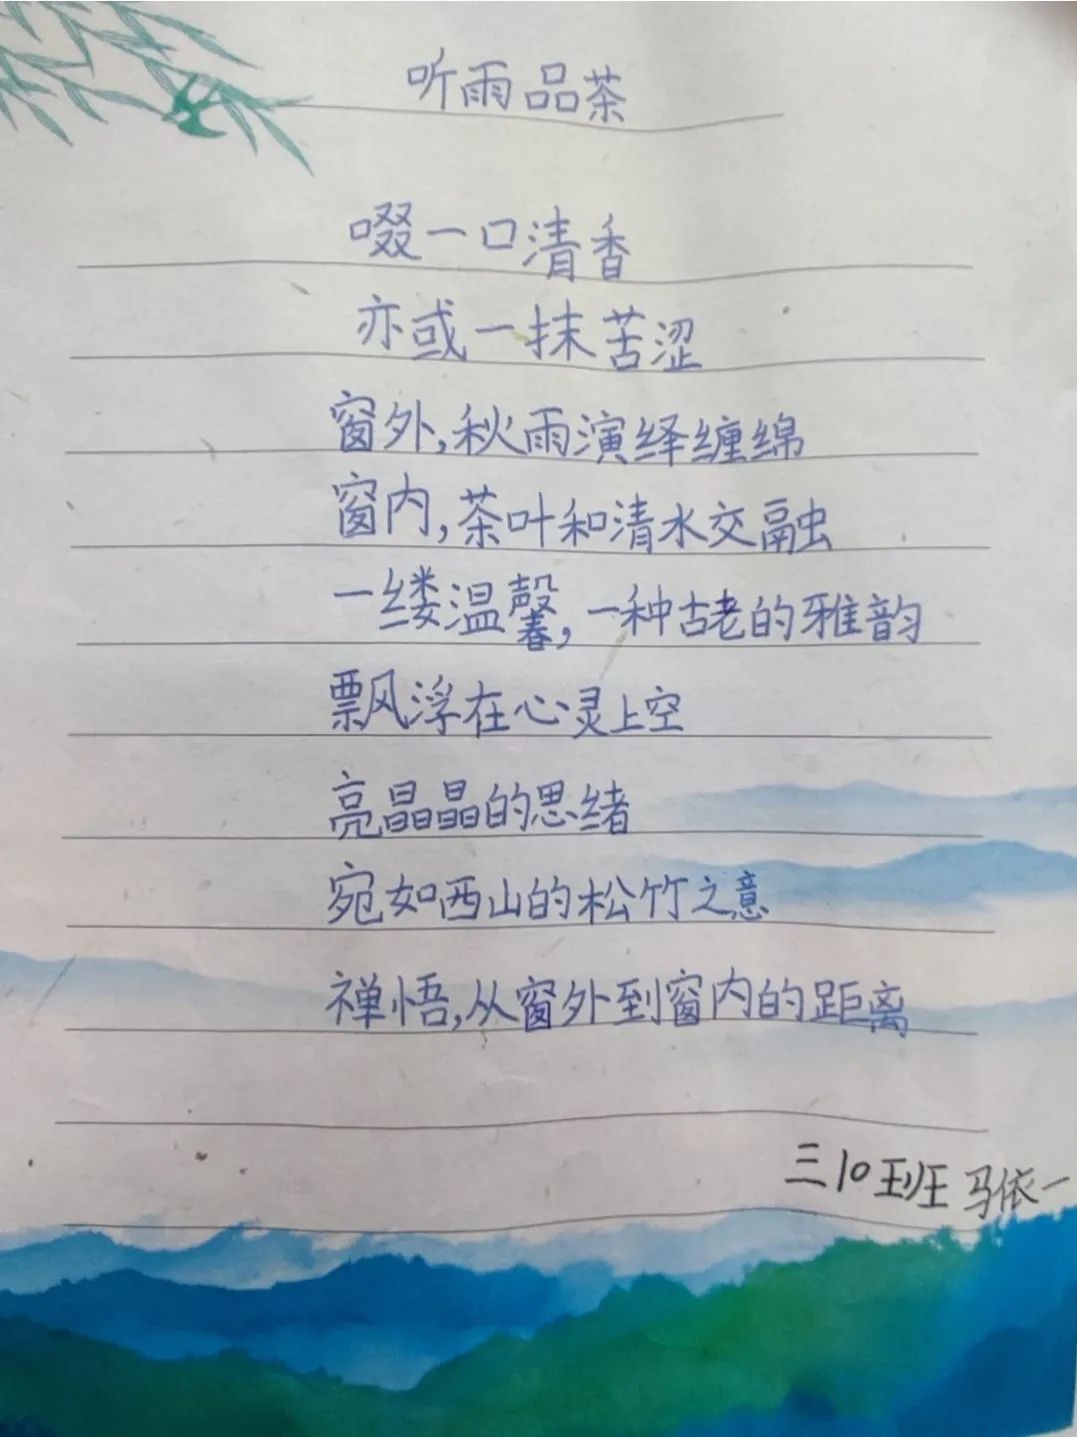 听雨品茶
啜一口清香
亦或一抹苦涩
窗外,秋雨演绎缠绵
窗内,茶叶和清水交融
一缕温馨,一种古老的雅韵
飘浮在心灵上空
亮晶晶的思绪
宛如西山的松竹之意
禅悟,从窗外到窗内的距离
三10班 马依一